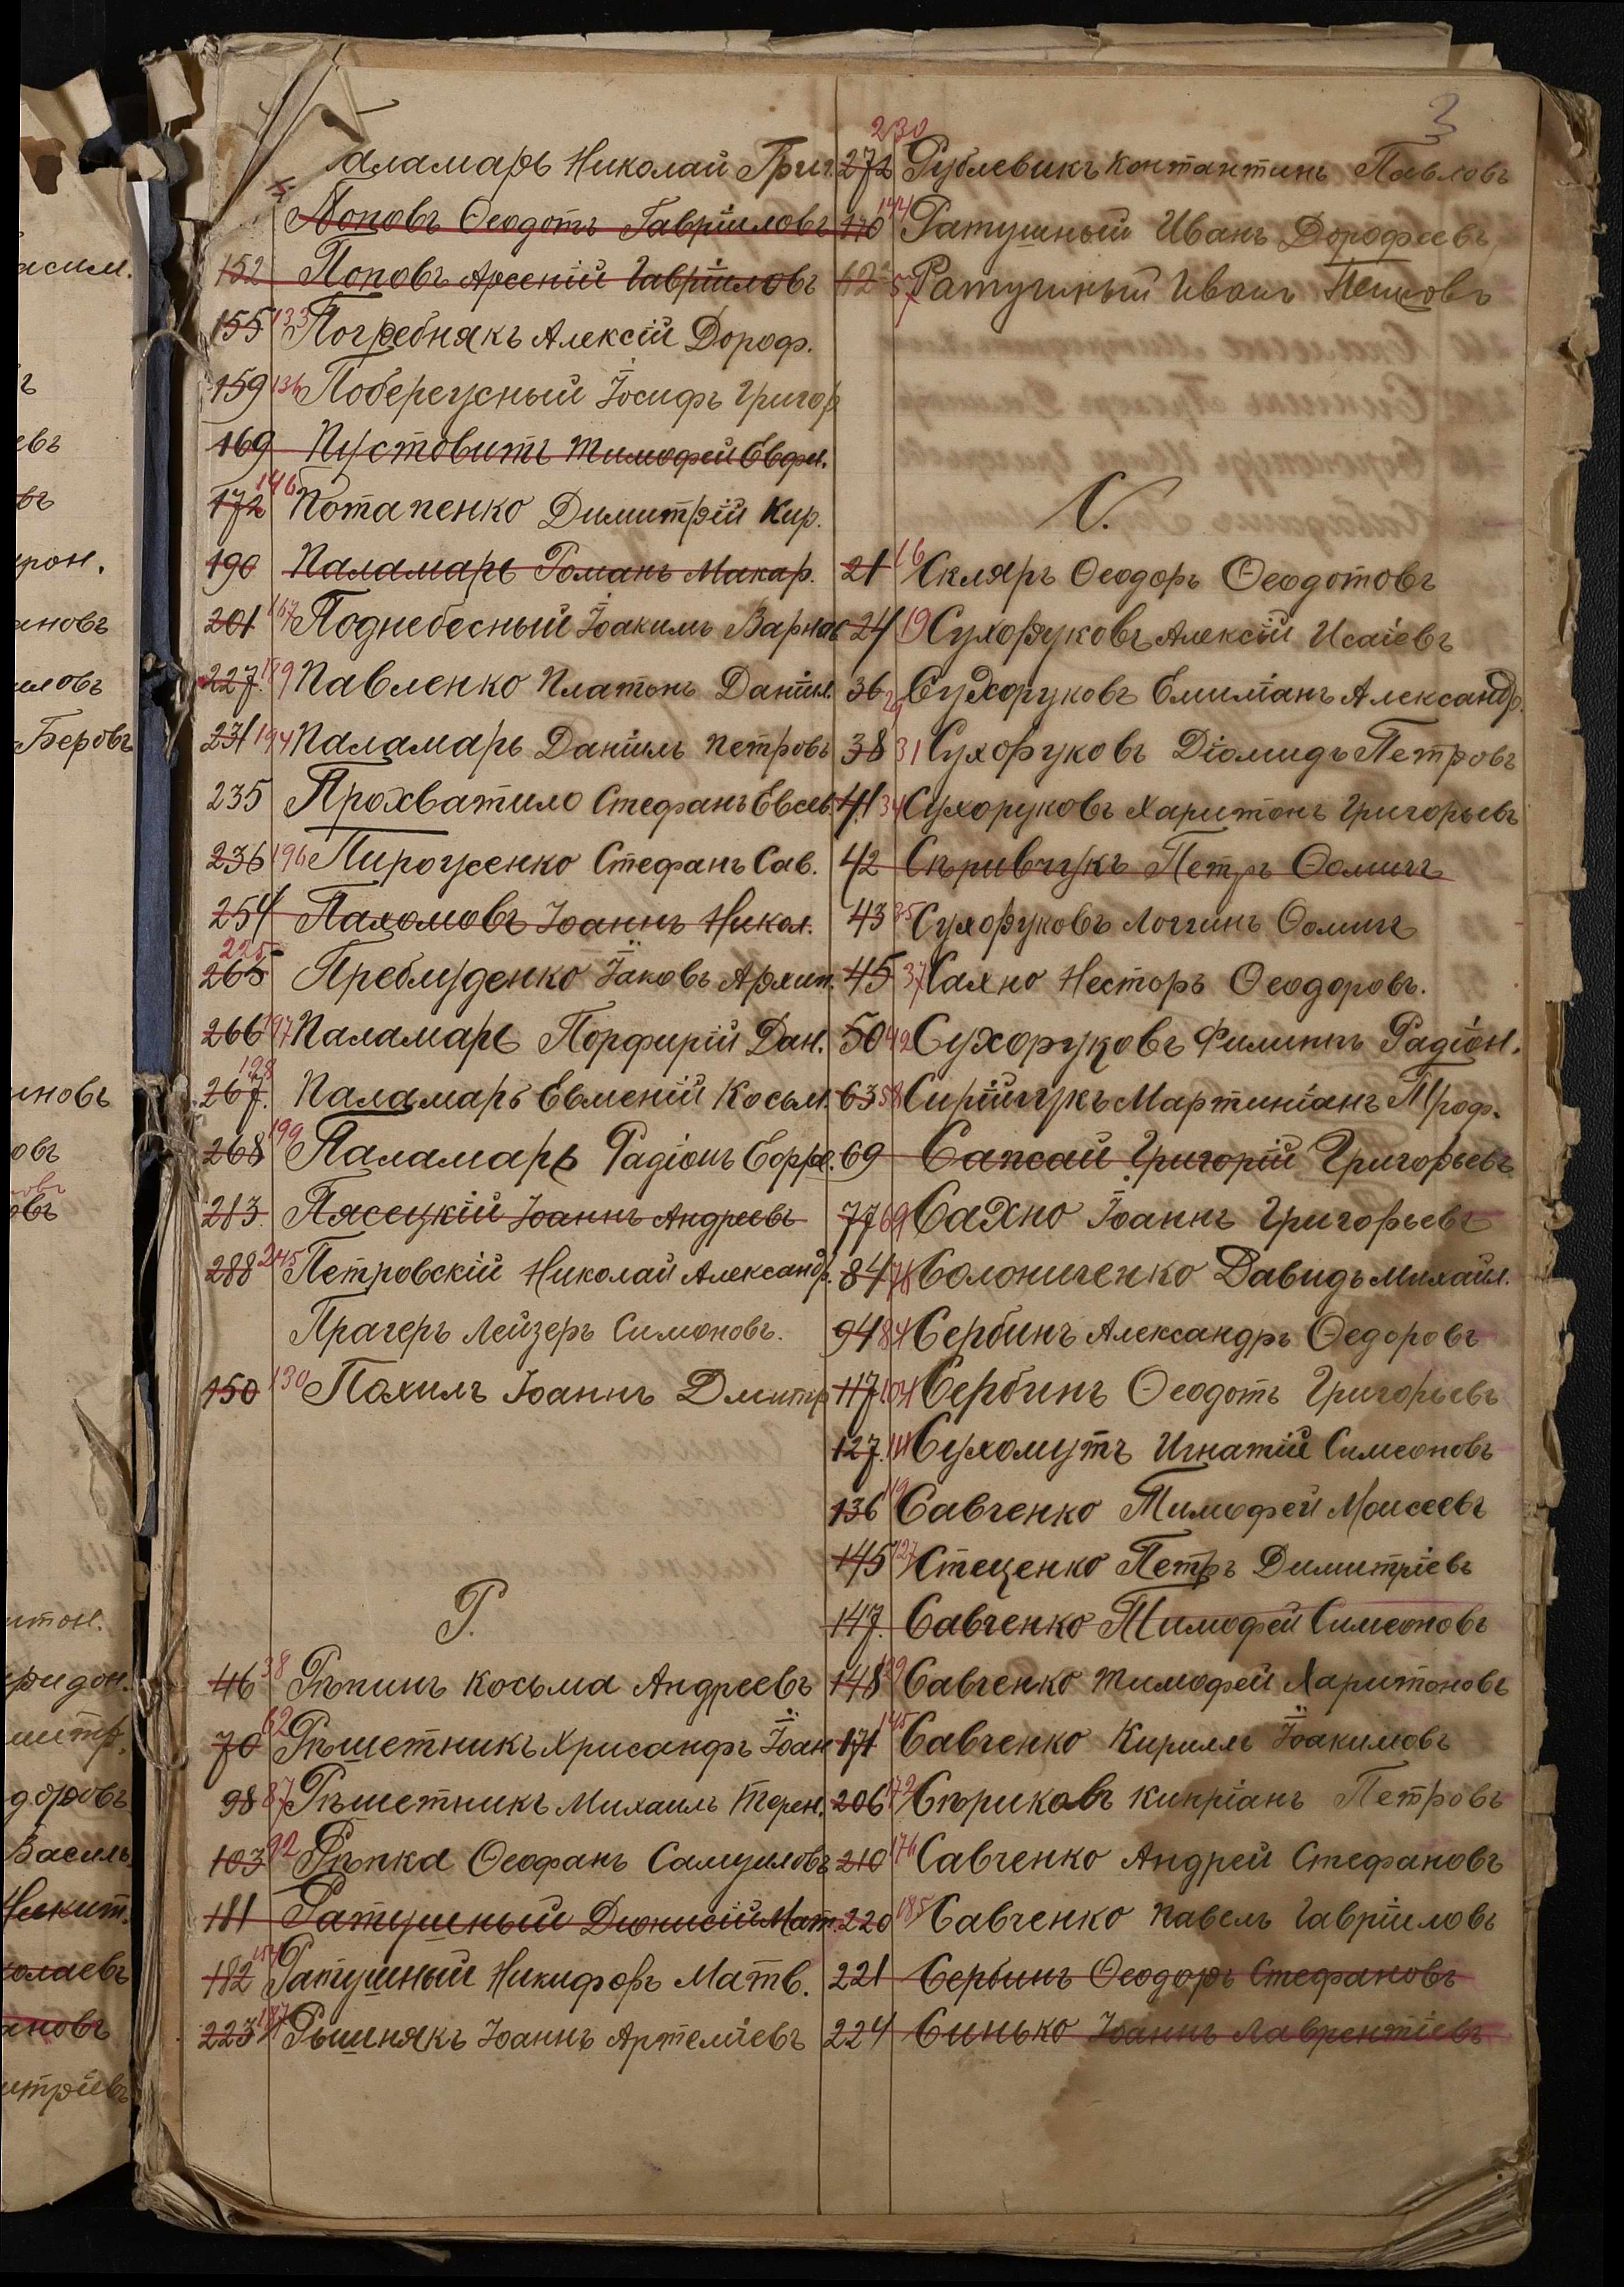 3
аламарь Николай Григ.
Поповъ Ѳеодотъ Гавріиловъ
152 Поповъ Арсеній Гавріиловъ
155 133 Погребнякъ Алексій Дороф.
159 136 Побережный Іосифъ Григор
169 Пустовитъ Тимофей Евфи.
172 146 Потапенко Димитрій Кир.
190 Паламарь Романъ Макар.
201 167 Поднебесный Іоакимъ Варнав
227. 189 Павленко Платонъ Даніил.
231 194 Паламарь Даніилъ Петровъ
235 Прохватило Стефанъ Евсев.
236 196 Пироженко Стефанъ Сав.
254 Пахомовъ Іоаннъ Никол.
265 225 Преблуденко Іаковъ Архип.
266 197 Паламарь Порфирій Дан.
267. 198 Паламарь Евменій Косьм.
268 199 Паламарь Радіонъ
283. Пясецкій Іоаннъ Андреевъ
288 245 Петровскій Николай Александр.
Прагеръ Лейзеръ Симоновъ.
150 130 Похилъ Іоаннъ Дмитр
Р.
46 38 Рѣпинъ Косьма Андреевъ
70 62 Рѣшетникъ Хрисанфъ Іоан
98 87 Рѣшетникъ Михаилъ Терен.
103 92 Рѣпка Ѳеофанъ Самуиловъ
181 Ратушный Діонисій Мат.
182 154 Ратушный Никифоръ Матв.
223 187 Рышнякъ Іоаннъ Артеміевъ
272 230 Рублевикъ Контантинъ Павловъ
170 144 Ратушный Иванъ Дорофеевъ
Ратушный Иванъ
С.
21 16 Скляръ Ѳеодоръ Ѳеодотовъ
24 19 Сухоруковъ Алексій Исаіевъ
36 29 Сухоруковъ Емиліанъ Александр.
38 31 Сухоруковъ Діомидъ Петровъ
41 34 Сухоруковъ Харитонъ Григорьевъ
42 Спривчукъ Петръ Ѳомичъ
43 35 Сухоруковъ Логгинъ Ѳомичъ
45 37 Сахно Несторъ Ѳеодоровъ.
50 42 Сухоруковъ Филиппъ Радіон.
63 58 Сирійчукъ Мартиніанъ Троф.
69 Сапсай Григорій Григорьевъ
77 69 Сахно Іоаннъ Григорьевъ
84 76 Солониченко Давидъ Михаил.
94 84 Сербинъ Александръ Ѳедоровъ
117 104 Сербинъ Ѳеодотъ Григорьевъ
127. 111 Сухомутъ Игнатій Симеоновъ
136 119 Савченко Тимофей Моисеевъ
145 127 Стеценко Петръ Димитріевъ
147. Савченко Тимофей Симеоновъ
148 129 Савченко Тимофей Харитоновъ
171 145 Савченко Кириллъ Іоакимовъ
206 172 Сѣриковъ Кипріанъ Петровъ
210 176 Савченко Андрей Стефановъ
220 185 Савченко Павелъ Гавріиловъ
221 Сербинъ Ѳеодоръ Стефановъ
224 Синько Іоаннъ Лаврентіевъ